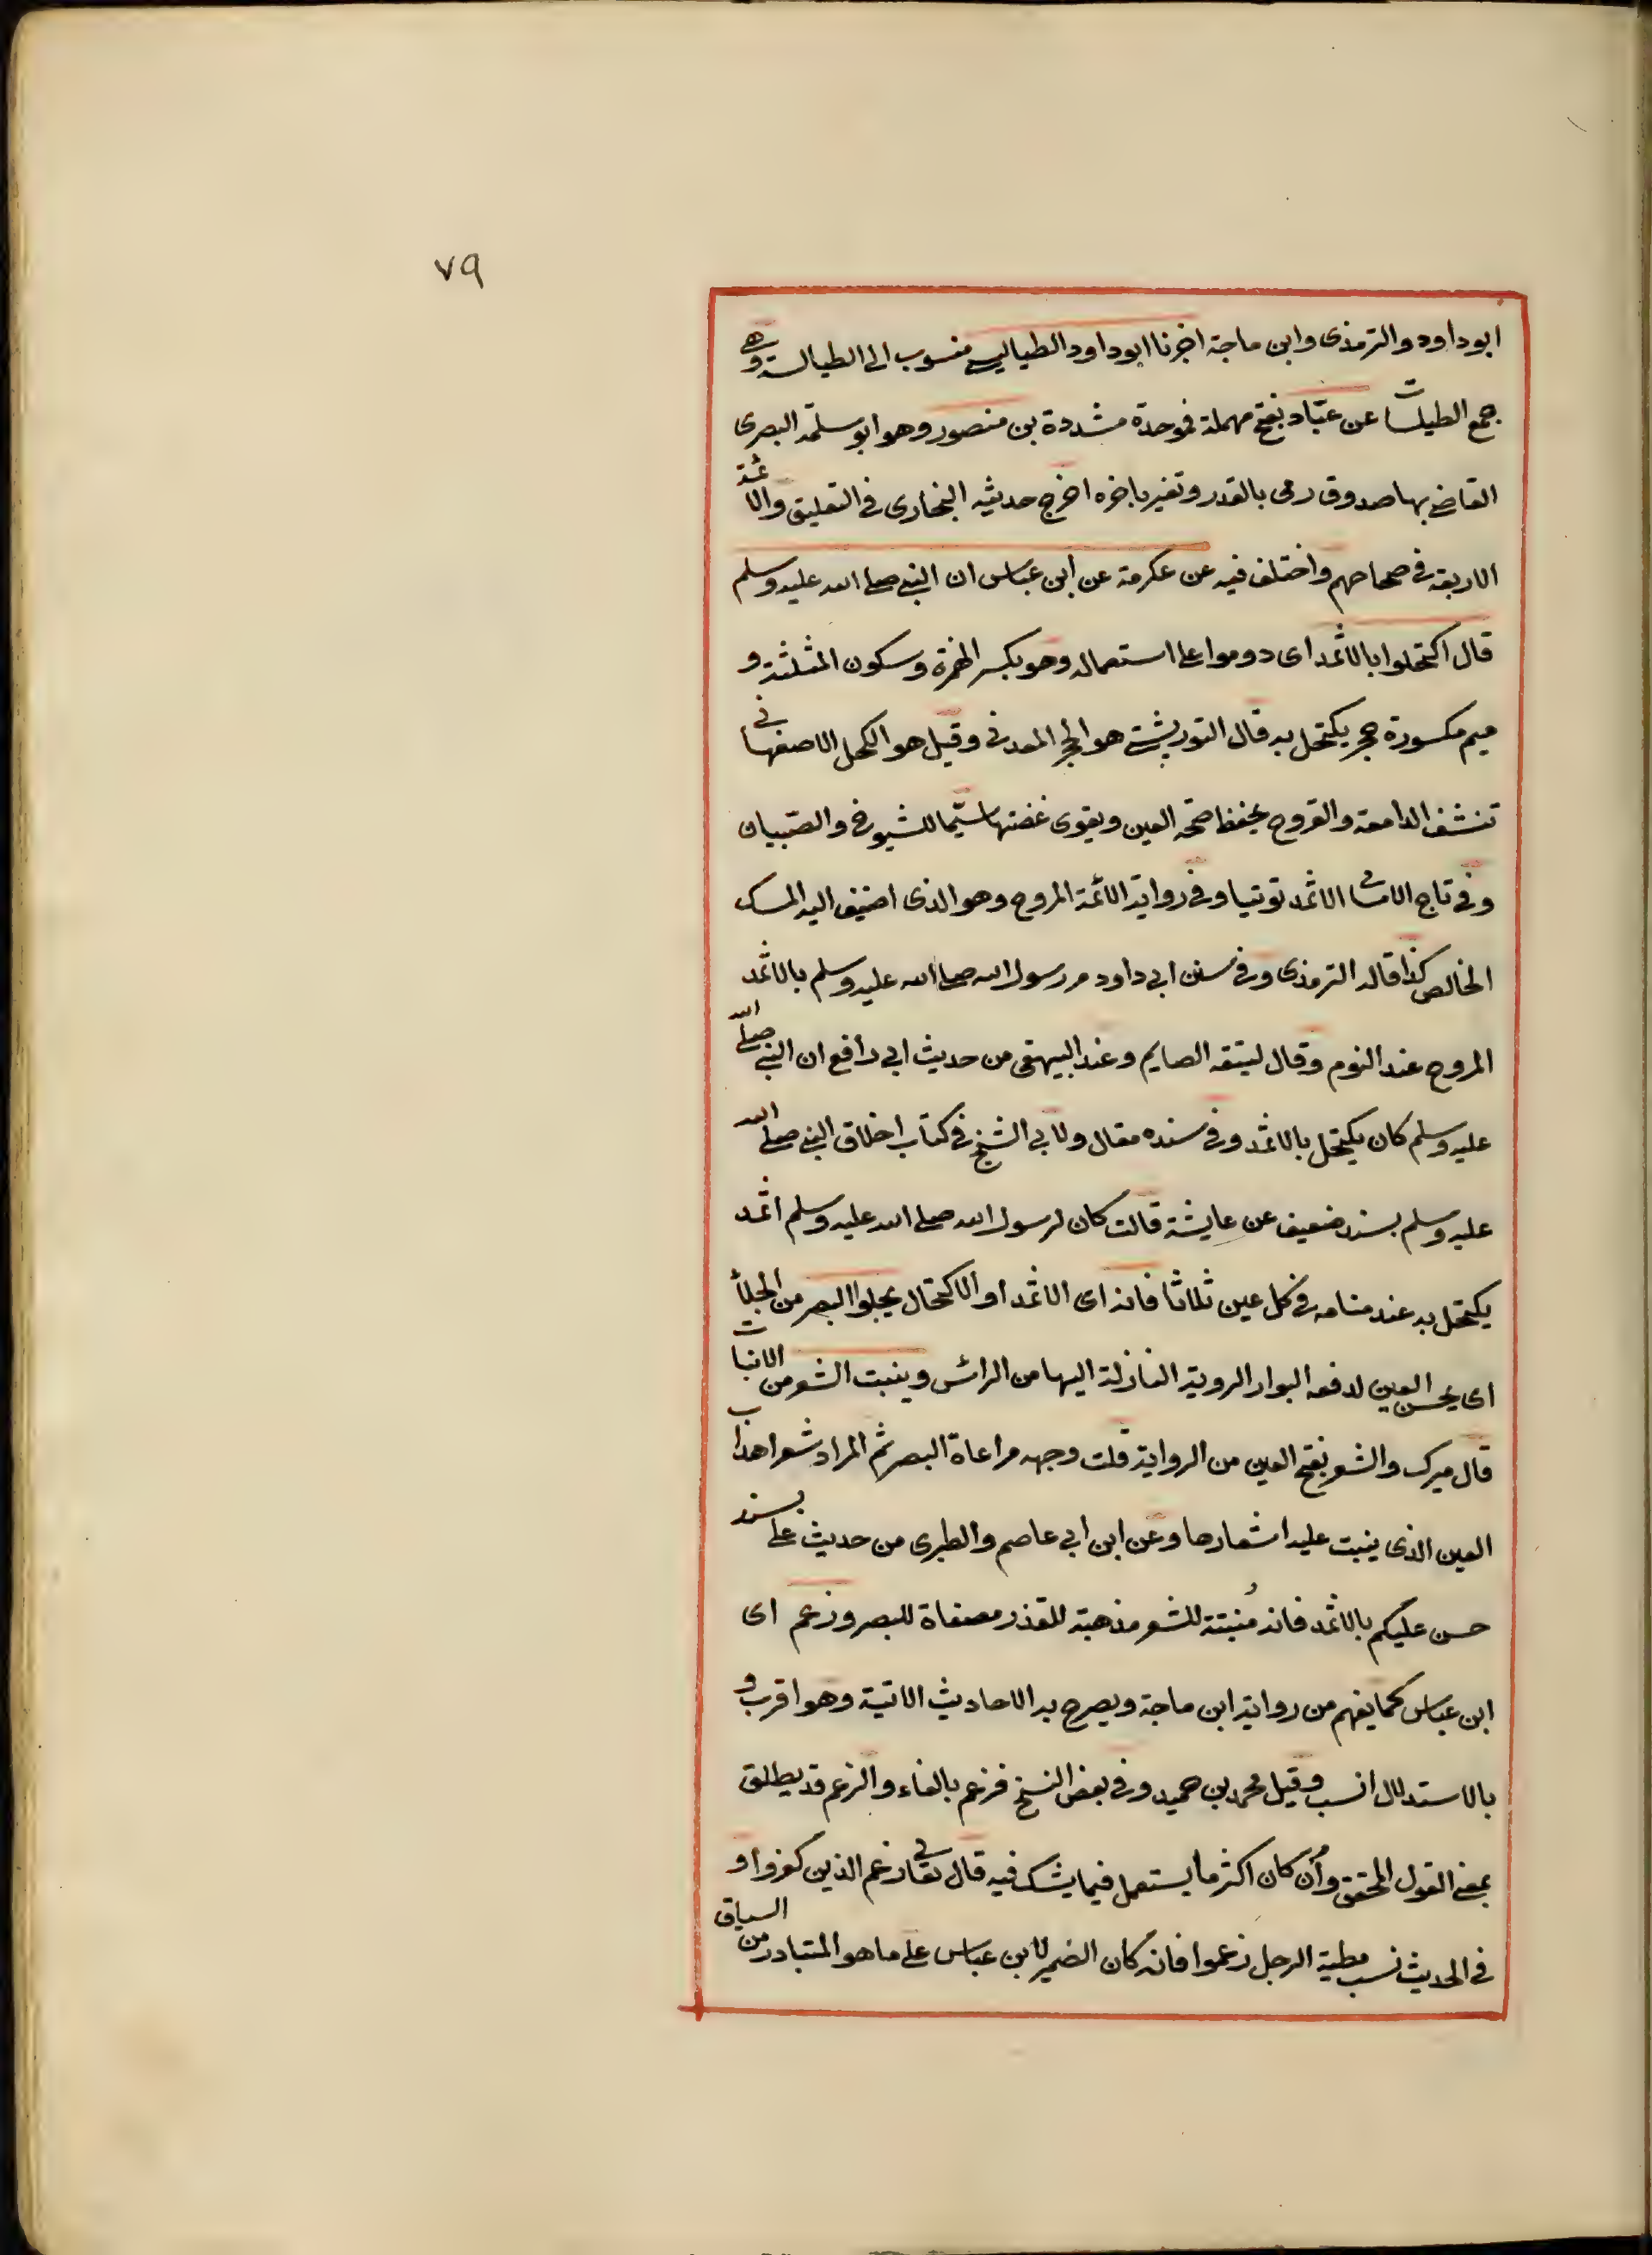 ٧٩
ابو داود والترمذى وابن ماجة اخبرنا ابو داود الطيالسى منسوب الى الطيالسة وهى
جمع الطيلسان عن عبّاد بفتح مهملة فموحدة مشددة بن منصور وهو ابو سلمة البصرى
القاضى بها صدوق رمى بالقدر وتغير باخره اخرج حديثه البخارى فى التعليق والائمة
الاربعة فى صحاحهم واختلف فيه عن عكرمة عن ابن عباس ان النبى صلى الله عليه وسلم
قال اكتحلوا بالاثمد اى دوموا على استعماله وهو بكسر الهمزة وسكون المثلثة و
ميم مكسورة حجر يكتحل به قال التوربشتى هو الحجر المعدنى وقيل هو الكحل الاصفهانى
تنشف الدامعة والقروح يحفظ صحة العين ويقوى غضنها سيّما للشيوخ والصّبيان
وفى تاج الاسامى الاثمد توتيا وفى رواية الائمة المروح وهو الذى اضيف اليه المسك
الخالص كذا قاله الترمذى وفى سنن ابى داود مر رسول الله صلى الله عليه وسلم بالاثمد
المروح عند النوم وقال ليتقه الصايم وعند البيهقى من حديث ابى رافع ان النبى صلى الله
عليه وسلم كان يكتحل بالاثمد وفى سنده مقال ولابى الشيخ فى كتاب اخلاق النبى صلى الله
عليه وسلم بسند ضعيف عن عايشة قالت كان لرسول الله صلى الله عليه وسلم اثمد
يكتحل به عند منامه فى كل عين ثلاثا فانه اى الاثمد او الاكتحال يجلوا البصر من الجلأ
اى يحسن العين لدفعه البوار الروية النازلة اليها من الرائس وينبت الشعر من الانبات
قال ميرك والشعر بفتح العين من الرواية قلت وجهه مراعاة البصر ثم المراد شعر اهذاب
العين الذى ينبت عليه اشعارها وعن ابن ابى عاصم والطبرى من حديث على بسند
حسن عليكم بالاثمد فانه مُنبتة للشعر مذهبة للقذر مصفاة للبصر وزعم اى
ابن عباس كما يفهم من رواية ابن ماجة ويصرح به الاحاديث الاتية وهو اقرب و
بالاستدلال انسب وقيل محمد بن حميد وفى بعض النسخ فزعم بالفاء والزعم قد يطلق
بمعنى القول المحقق وأن كان اكثر ما يستعمل فيما يشك فيه قال تعالى زعم الذين كفروا و
فى الحديث نسب مطية الرجل زعموا فانه كان الضمير لابن عباس على ما هو المتبادر من السياق